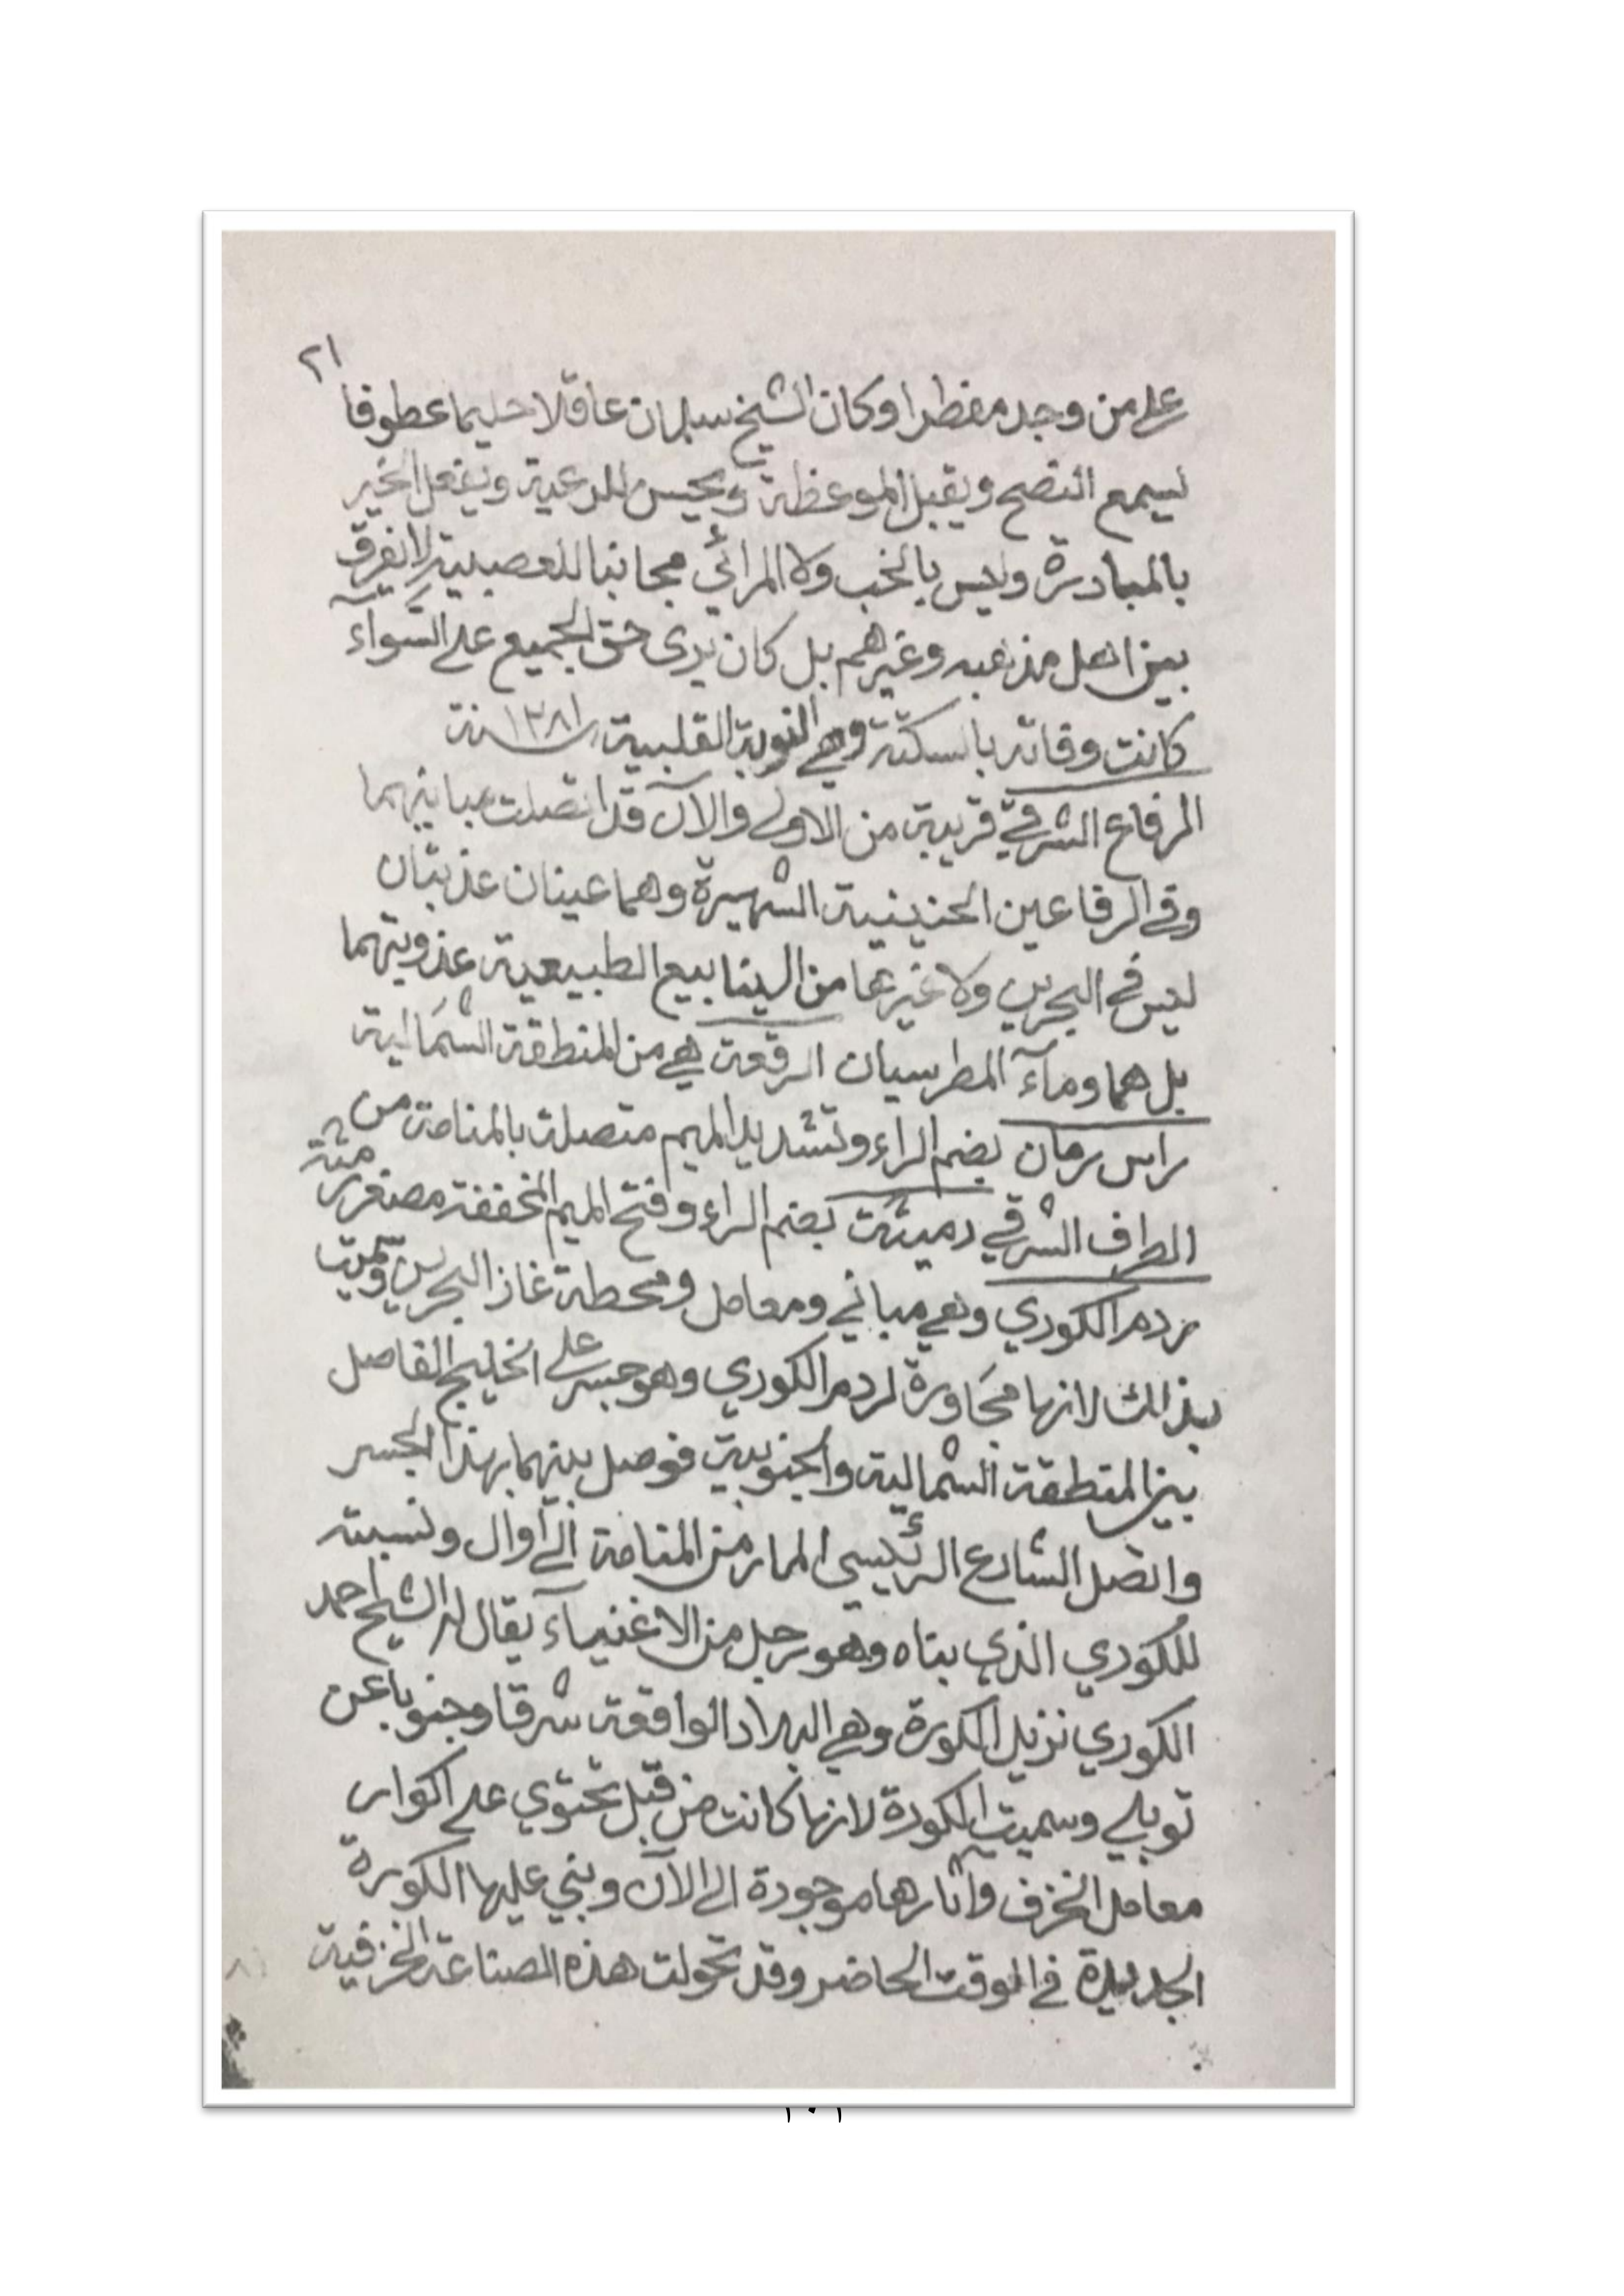 ٢١
على من وجد مفطرا وكان الشيخ سلمان عاقلا حليما عطوفا
يسمع النصح ويقبل الموعظة ويحسن للرعية ويفعل الخير
بالمبادرة وليس بالخب ولا المرائي مجانبا للعصبية لا يفرق
بين اهل مذهبه وغيرهم بل كان يرى حق الجميع على السَّوآء
كانت وفاته بالسكتة وهي النوبة القلبية سنة ١٣٨١
الرفاع الشرقي قريبة من الاولى والآن قد اتصلت مبانيهما
وفي الرفاعين الحنينية الشهيرة وهما عينان عذبتان
ليس في البحرين ولا غيرها من الينابيع الطبيعية عذوبتهما
بل هما ومآء المطر سيان الرقعة هي من المنطقة الشمَالية
راس رمان بضم الراء وتشديد الميم متصلة بالمنامة من
الطرف الشرقي رميثة بضم الراء وفتح الميم المخففة مصغر رمثة
ردم الكوري وهي مباني ومعامل ومحطة غاز البحرين وسميت
بذالك لانها مجَاورة لردم الكوري وهو جسر على الخليج الفاصل
بين المنطقة الشمالية والجنوبية فوصل بينهما بهذا الجسر
واتصل الشارع الرئيسي المار من المنامة الى أوال ونسبته
للكوري الذي بناه وهو رجل من الاغنيآء يقال له الشيخ احمد
الكوري نزيل الكورة وهي البلاد الواقعة شرقا وجنوبا عن
توبلي وسميت الكورة لانها كانت من قبل تحتوي على اكوار
معامل الخزف وآثارها موجودة الى الآن وبني عليها الكورة
الجديدة في الوقت الحاضر وقد تحولت هذه الصناعة الخزفية